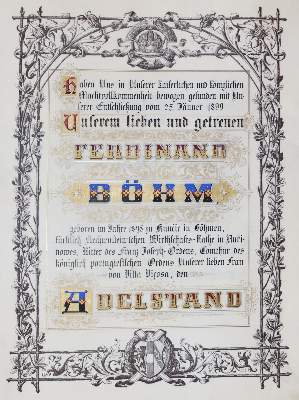 Haben Uns in Unserer kaiserlichen und königlichen
Machtvollkommenheit bewogen gefunden mit Un-
serer Entschließung vom 25. Jänner 1899
Unserem lieben und getreuen
FERDINAND
BÖHM
geboren im Jahre 1828 zu in Böhmen,
fürstlich Wirthschafts-Rathe in
Ritter des Franz Joseph-Ordens, Comthur des
königlich portugiesischen Ordens Unserer lieben Frau
von Villa Viçosa, den
ADELSTAND